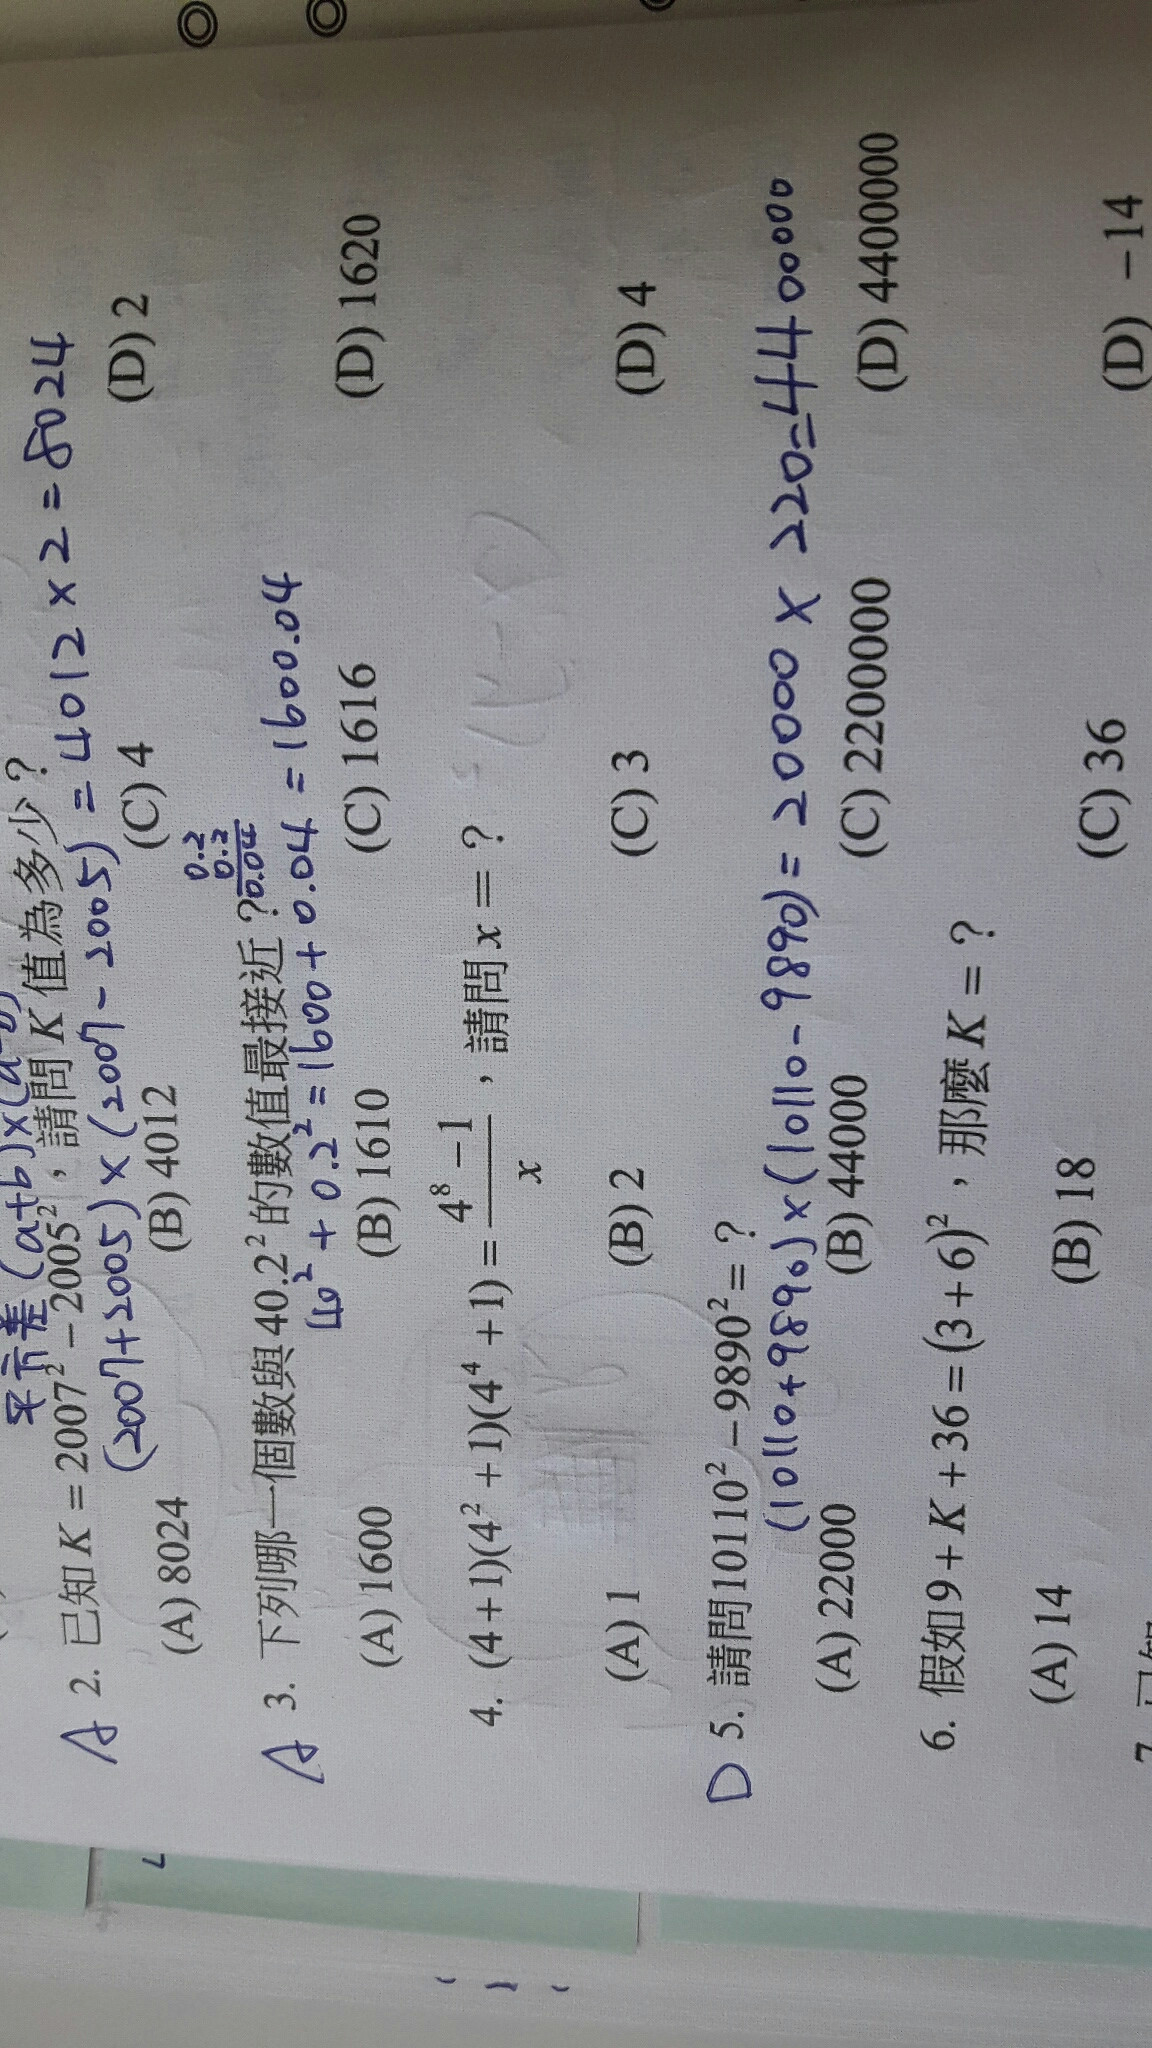 平方差(a+b)×(a-b)
2. 已知K=2007²-2005²，請問K值為多少？
(2007+2005)×(2007-2005)=4012×2=8024
A
(A) 8024 (B) 4012 (C) 4 (D) 2
0.2
0.2
0.04
3. 下列哪一個數與40.2²的數值最接近？
A
40²+0.2²=1600+0.04=1600.04
(A) 1600 (B) 1610 (C) 1616 (D) 1620
4. (4+1)(4²+1)(4⁴+1)=(4⁸-1)/x，請問x=？
(A) 1 (B) 2 (C) 3 (D) 4
D 5. 請問10110²-9890²=？
(10110+9890)×(10110-9890)=20000×220=4400000
(A) 22000 (B) 44000 (C) 2200000 (D) 4400000
6. 假如9+K+36=(3+6)²，那麼K=？
(A) 14 (B) 18 (C) 36 (D) -14